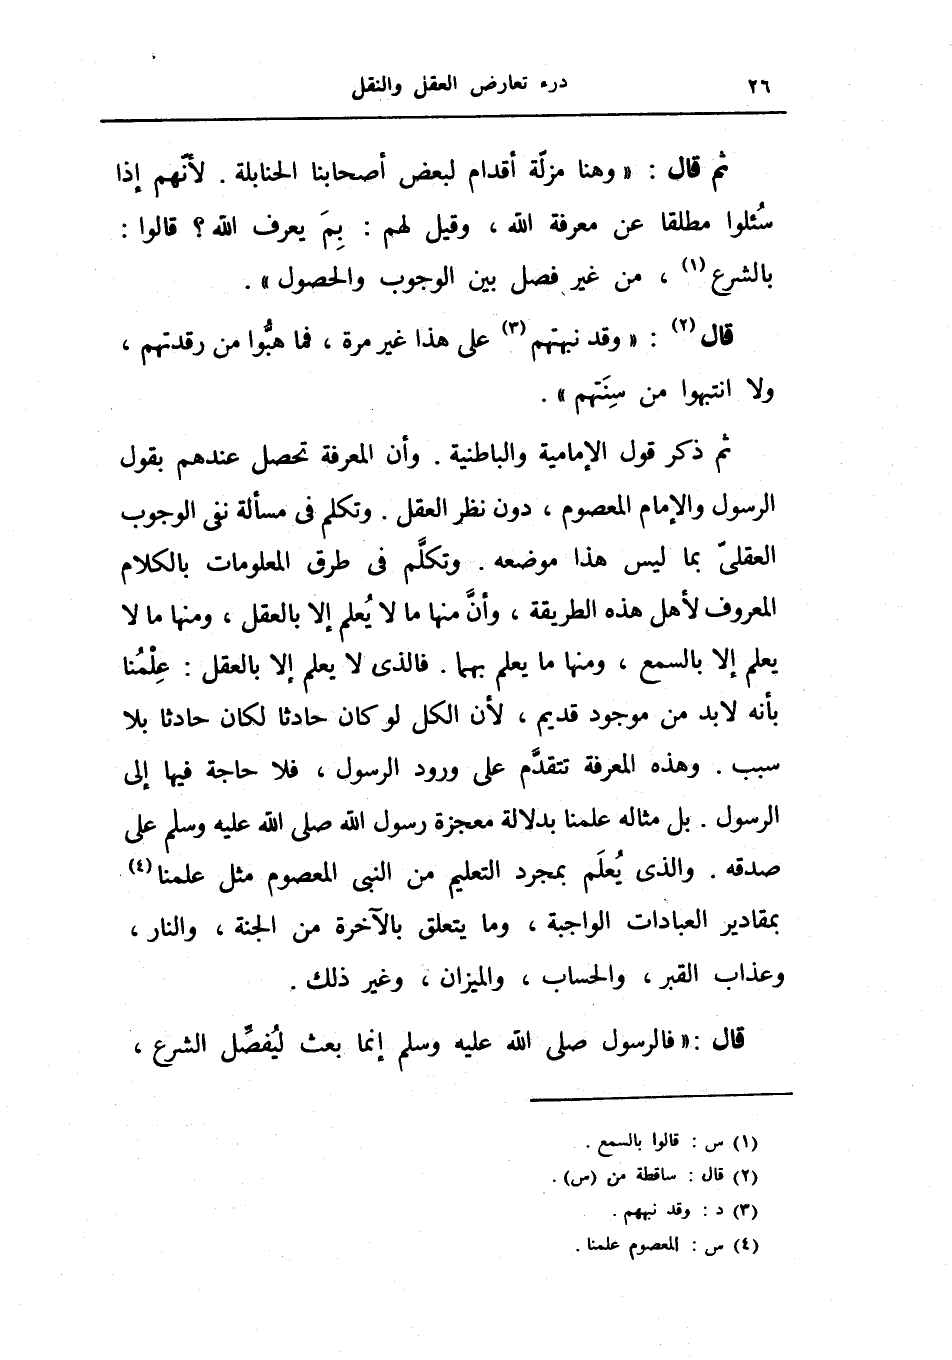 ٢٦ درء تعارض العقل والنقل
ثم قال : « وهنا مزلّة أقدام لبعض أصحابنا الحنابلة . لأنّهم إذا
سُئلوا مطلقا عن معرفة الله ، وقيل لهم : بِمَ يعرف الله ؟ قالوا :
بالشرع (١) ، من غير فصل بين الوجوب والحصول » .
قال (٢) : « وقد نبهتهم (٣) على هذا غير مرة ، فما هبُّوا من رقدتهم ،
ولا انتبهوا من سِنَتهم » .
ثم ذكر قول الإمامية والباطنية . وأن المعرفة تحصل عندهم بقول
الرسول والإمام المعصوم ، دون نظر العقل . وتكلم فى مسألة نفى الوجوب
العقلىّ بما ليس هذا موضعه . وتكلَّم فى طرق المعلومات بالكلام
المعروف لأهل هذه الطريقة ، وأنَّ منها ما لا يُعلم إلا بالعقل ، ومنها ما لا
يعلم إلا بالسمع ، ومنها ما يعلم بهما . فالذى لا يعلم إلا بالعقل : عِلْمُنا
بأنه لابد من موجود قديم ، لأن الكل لو كان حادثا لكان حادثا بلا
سبب . وهذه المعرفة تتقدَّم على ورود الرسول ، فلا حاجة فيها إلى
الرسول . بل مثاله علمنا بدلالة معجزة رسول الله صلى الله عليه وسلم على
صدقه . والذى يُعلَم بمجرد التعليم من النبى المعصوم مثل علمنا (٤)
بمقادير العبادات الواجبة ، وما يتعلق بالآخرة من الجنة ، والنار ،
وعذاب القبر ، والحساب ، والميزان ، وغير ذلك .
قال :« فالرسول صلى الله عليه وسلم إنما بعث ليُفصِّل الشرع ،
(١) س : قالوا بالسمع .
(٢) قال : ساقطة من (س) .
(٣) د : وقد نبههم .
(٤) س : المعصوم علمنا .